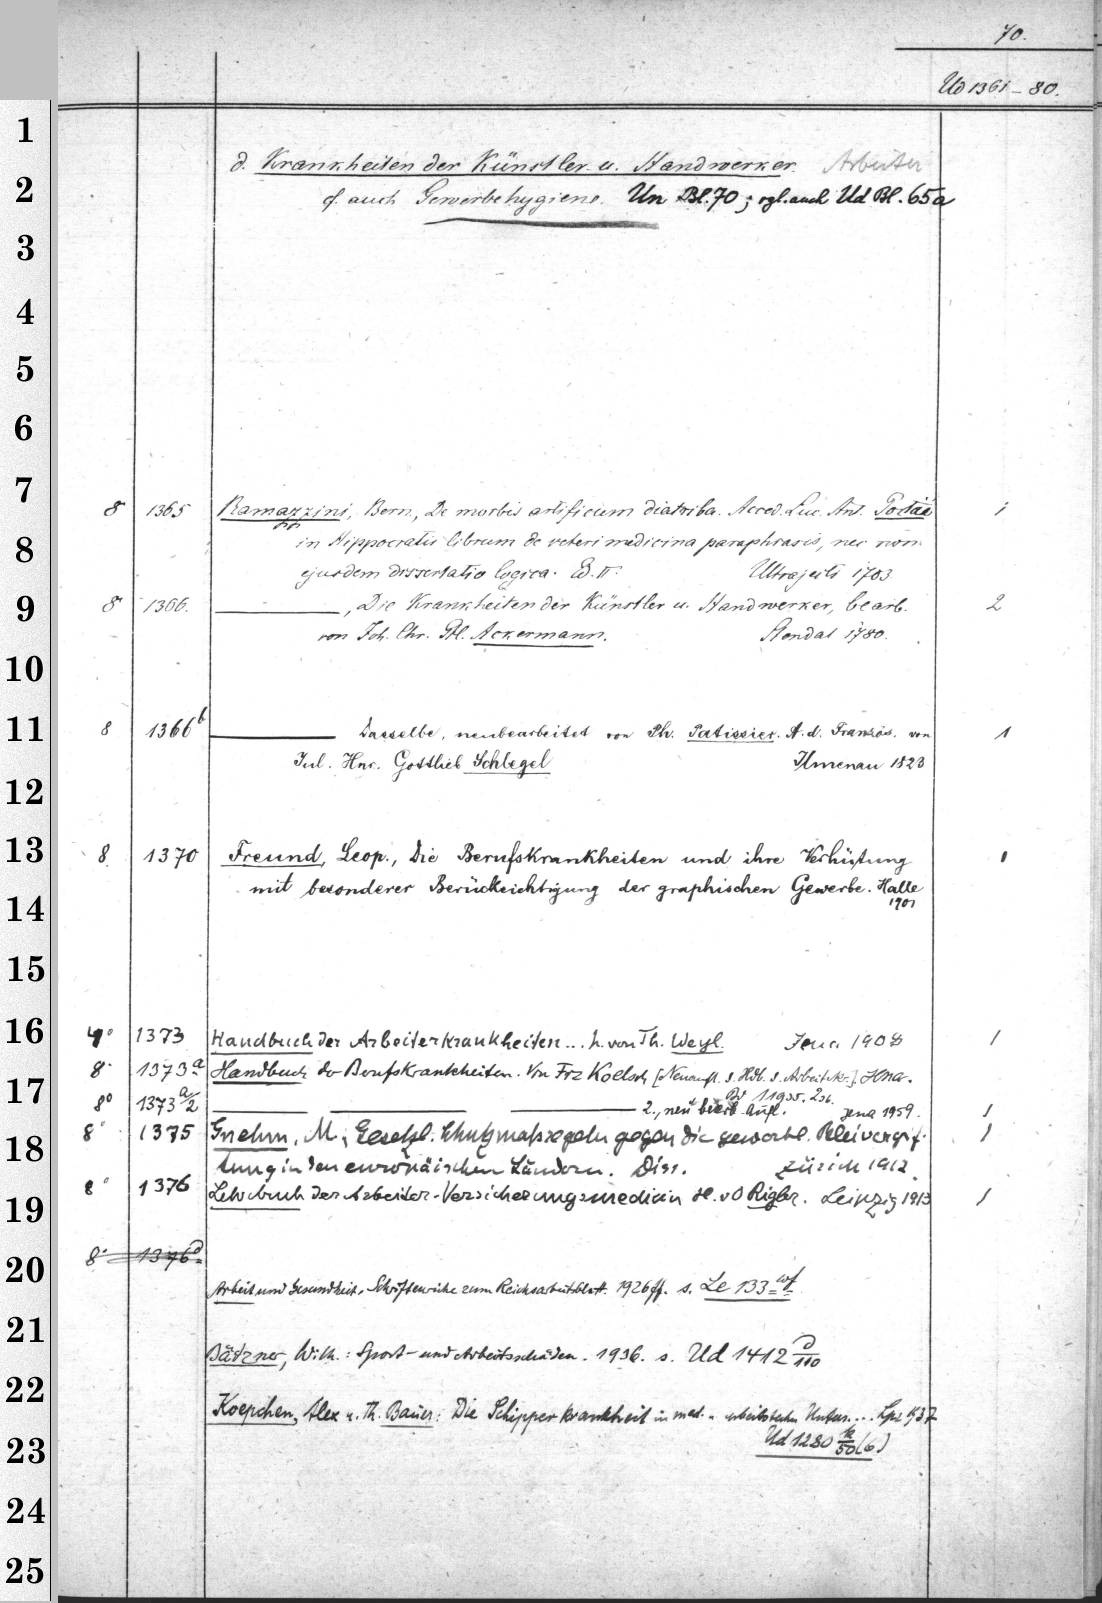 70.
Ud 1361-80.
d. Krankheiten der Künstler u. Handwerker. Arbeiter
cf. auch Gewerbehygiene. Un Bl. 70; vgl. auch Ud Bl. 65a
8 1365 Ramazzini, Bern., De morbis artificum diatriba. Acced. Luc. Ant. Portii 1
in Hippocratis librum de veteri medicina paraphrasis, nec non
ejusdem dissertatio logica. Ed. II. Ultrajecti 1703
8 1366. ———, Die Krankheiten der Künstler u. Handwerker, bearb. 2
von Joh. Chr. Gtl. Ackermann. Stendal 1780.
8 1366b ——— Dasselbe, neubearbeitet von Ph. Patissier. A. d. Französ. von 1
Jul. Hnr. Gottlieb Schlegel Ilmenau 1823
8 1370 Freund, Leop., Die Berufskrankheiten und ihre Verhütung 1
mit besonderer Berücksichtigung der graphischen Gewerbe. Halle
1901
4° 1373 Handbuch der Arbeiterkrankheiten... h. von Th. Weyl. Jena 1908 1
8° 1373a Handbuch der Berufskrankheiten. Von Frz Koelsch [Neuaufl. d. Hdb. d. Arbeiterkr.]. Jena.
Bd 1 1935. 2 36.
8° 1373a/2 ——— ——— ——— 2., neu bearb. Aufl. Jena 1959. 1
8° 1375 Gnehm, M., Gesetzl. Schutzmassregeln gegen die gewerbl. Bleivergif- 1
tung in den europäischen Ländern. Diss. Zürich 1912
8° 1376 Lehrbuch der Arbeiter-Versicherungsmedicin H. v O Rigler. Leipzig 1913 1
8° 1376d
Arbeit und Gesundheit. Schriftenreihe zum Reichsarbeitsblatt. 1926ff. s. Le 133 wf
Bätzner, Wilh.: Sport- und Arbeitsschäden. 1936. s. Ud 1412 d/110
Koepchen, Alex u. Th. Bauer: Die Schipperkrankheit in med. u. arbeitstechn Unters.... Lpz 1937
Ud 1280 k/50 (6)
1
2
3
4
5
6
7
8
9
10
11
12
13
14
15
16
17
18
19
20
21
22
23
24
25